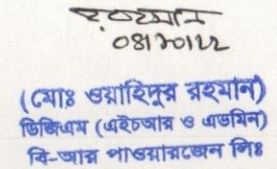 ০৪১০১২২
(মোঃ ওয়াহিদুর রহমান)
ডিজিএম (এইচআর ও এডমিন)
বি-আর পাওয়ারজেন লিঃ